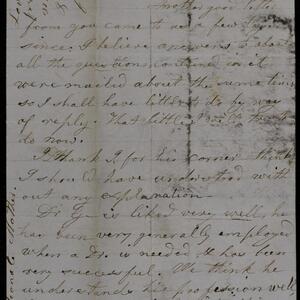 Another good letter
from you came to us a few days
since. I believe answers to about
all the questions contained in it
were mailed about the same time
so I shall have little to do by way
of reply. That little I will try to
do now.
I thank I for his corner think
I should have understood with
out any explanation
Dr G is liked very well, he
has been very generally employed
when a Dr. is needed & has been
very successful. We think he
understands his profession well